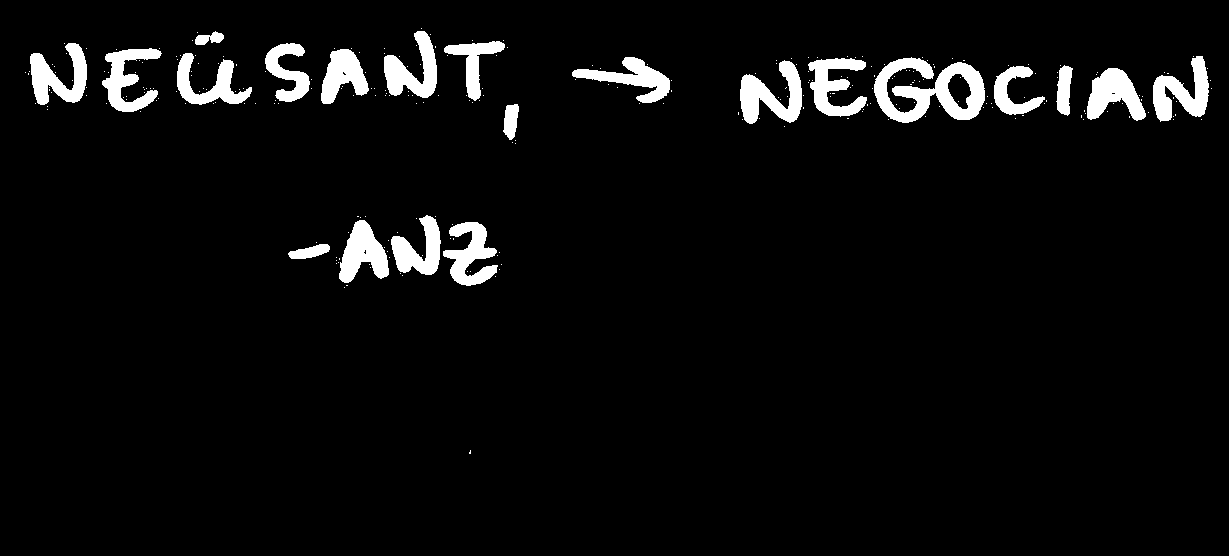 NEÜSANT, → NEGOCIAN
-ANZ